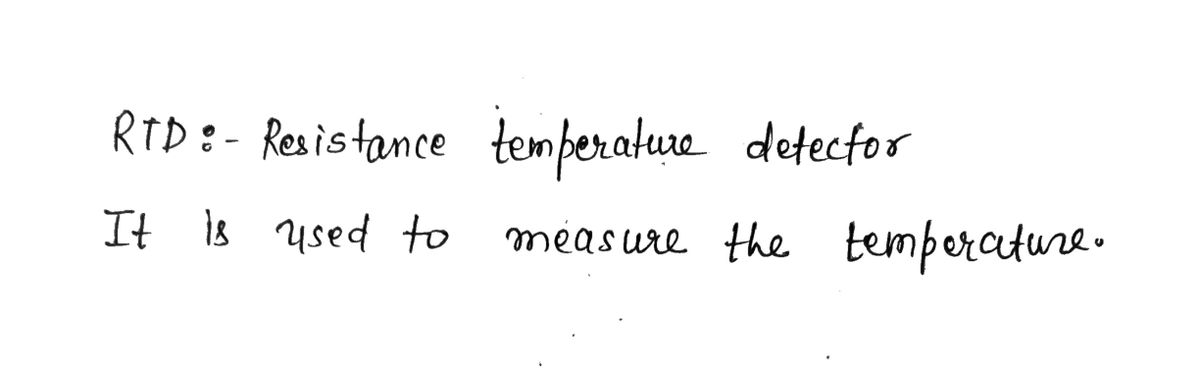 RTD :- Resistance temperature detector
It is used to measure the temperature.